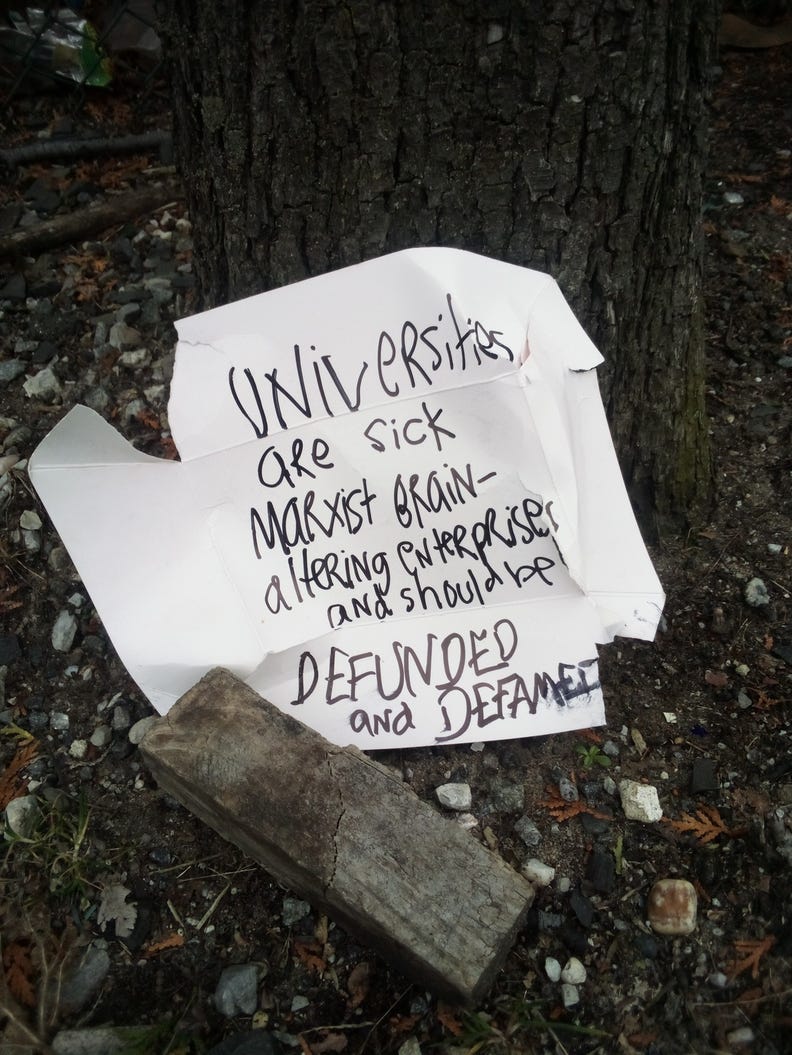 UNIVERSITIES
are sick
MARXIST BRAIN-
altering enterprises
and should be
DEFUNDED
and DEFAMED